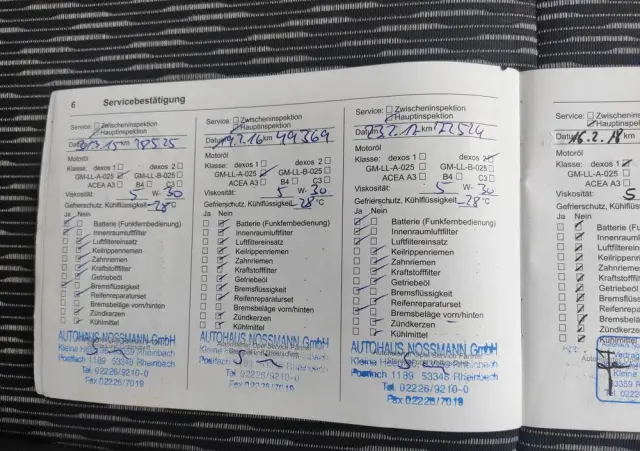 6 Servicebestätigung
Service: Zwischeninspektion
Hauptinspektion
Datum 15 km 28525
Motoröl
Klasse: dexos 1 dexos 2
GM-LL-A-025 GM-LL-B-025
ACEA A3 B4 C3
Viskosität: 5 W- 30
Gefrierschutz, Kühlflüssigkeit -28 °C
Ja Nein
Batterie (Funkfernbedienung)
Innenraumluftfilter
Luftfiltereinsatz
Keilrippenriemen
Zahnriemen
Kraftstofffilter
Getriebeöl
Bremsflüssigkeit
Reifenreparaturset
Bremsbeläge vorn/hinten
Zündkerzen
Kühlmittel
AUTOHAUS NOSSMANN GmbH
Kleine Rheinbach
Postfach 1189 53348 Rheinbach
Tel. 02226/9210-0
Fax 02226/7019
Service: Zwischeninspektion
Hauptinspektion
Datum 2.16 km 49369
Motoröl
Klasse: dexos 1 dexos 2
GM-LL-A-025 GM-LL-B-025
ACEA A3 B4 C3
Viskosität: 5 W- 30
Gefrierschutz, Kühlflüssigkeit -28 °C
Ja Nein
Batterie (Funkfernbedienung)
Innenraumluftfilter
Luftfiltereinsatz
Keilrippenriemen
Zahnriemen
Kraftstofffilter
Getriebeöl
Bremsflüssigkeit
Reifenreparaturset
Bremsbeläge vorn/hinten
Zündkerzen
Kühlmittel
AUTOHAUS NOSSMANN GmbH
Kleine Rheinbach
Postfach 1189 53348 Rheinbach
Tel. 02226/9210-0
Fax 02226/7019
Service: Zwischeninspektion
Hauptinspektion
Datum 2.17 km 72524
Motoröl
Klasse: dexos 1 dexos 2
GM-LL-A-025 GM-LL-B-025
ACEA A3 B4 C3
Viskosität: 5 W- 30
Gefrierschutz, Kühlflüssigkeit -28 °C
Ja Nein
Batterie (Funkfernbedienung)
Innenraumluftfilter
Luftfiltereinsatz
Keilrippenriemen
Zahnriemen
Kraftstofffilter
Getriebeöl
Bremsflüssigkeit
Reifenreparaturset
Bremsbeläge vorn/hinten
Zündkerzen
Kühlmittel
AUTOHAUS NOSSMANN GmbH
Kleine Rheinbach
Postfach 1189 53348 Rheinbach
Tel. 02226/9210-0
Fax 02226/7019
Service: Zwischeninspektion
Hauptinspektion
Datum 16.2.18 km
Motoröl
Klasse: dexos 1
GM-LL-A-025
ACEA A3
Viskosität: 5
Gefrierschutz, Kühlflüssigkeit
Ja Nein
Batterie
Innenraumluft
Luftfiltereinsatz
Keilrippenriemen
Zahnriemen
Kraftstofffilter
Getriebeöl
Bremsflüssigkeit
Reifenreparatur
Bremsbeläge
Zündkerzen
Kühlmittel
Kleine
53359 Rhein
Tel. 0222